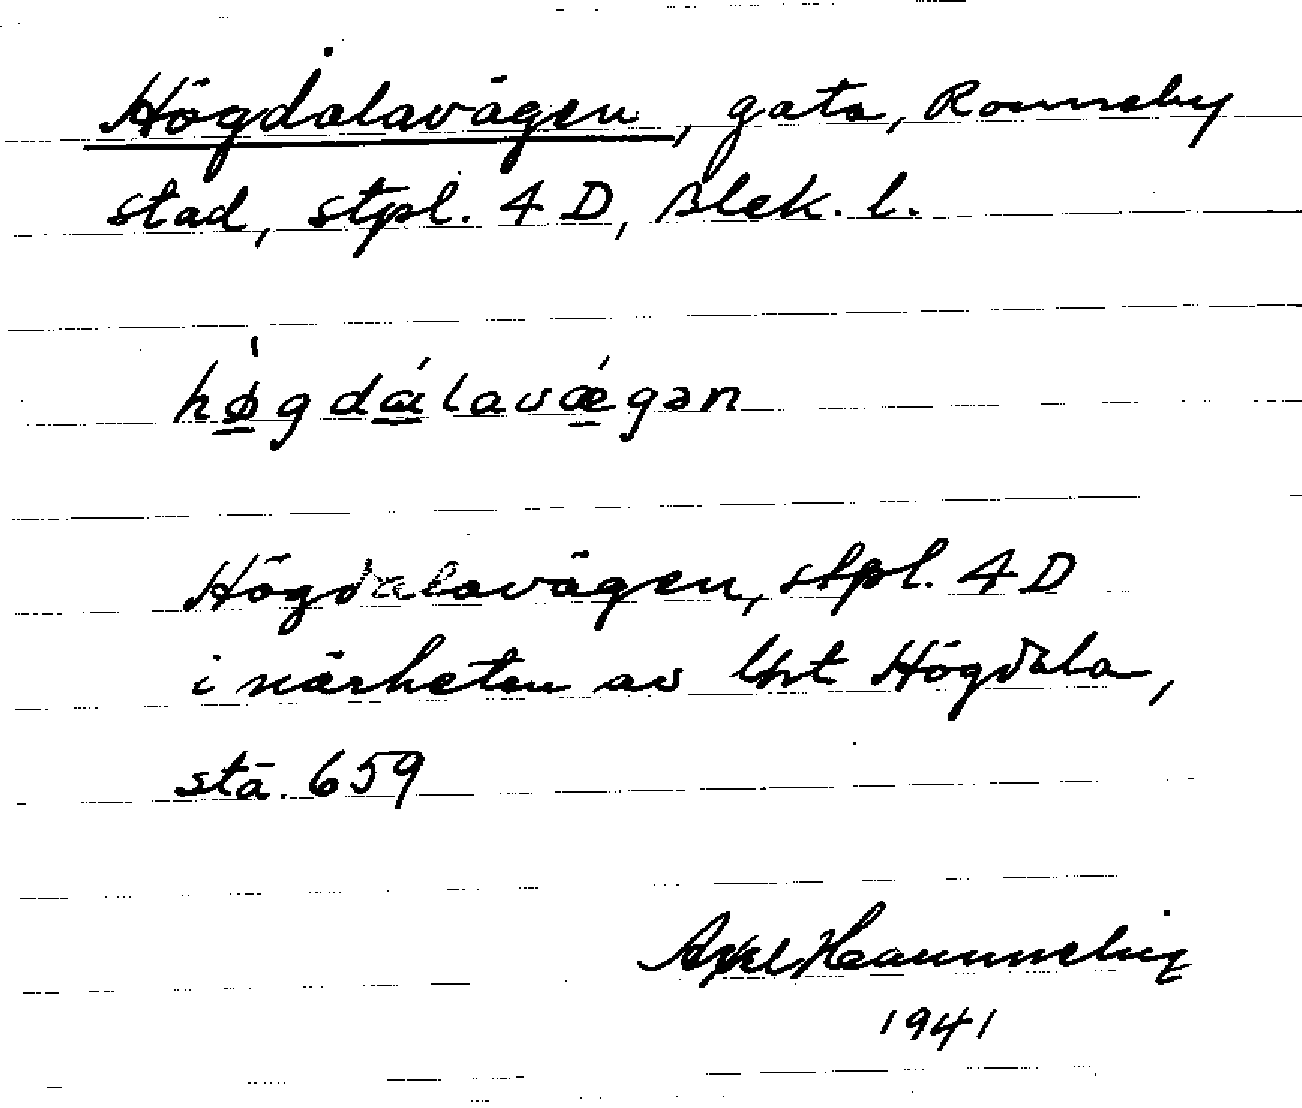 Högdalavägen, gata, Ronneby
stad, stpl. 4 D, Blek. l.
hø̀gdálavǽgən
Högdalavägen, stpl. 4 D
i närheten av Högdala,
stä. 659
Axel
1941